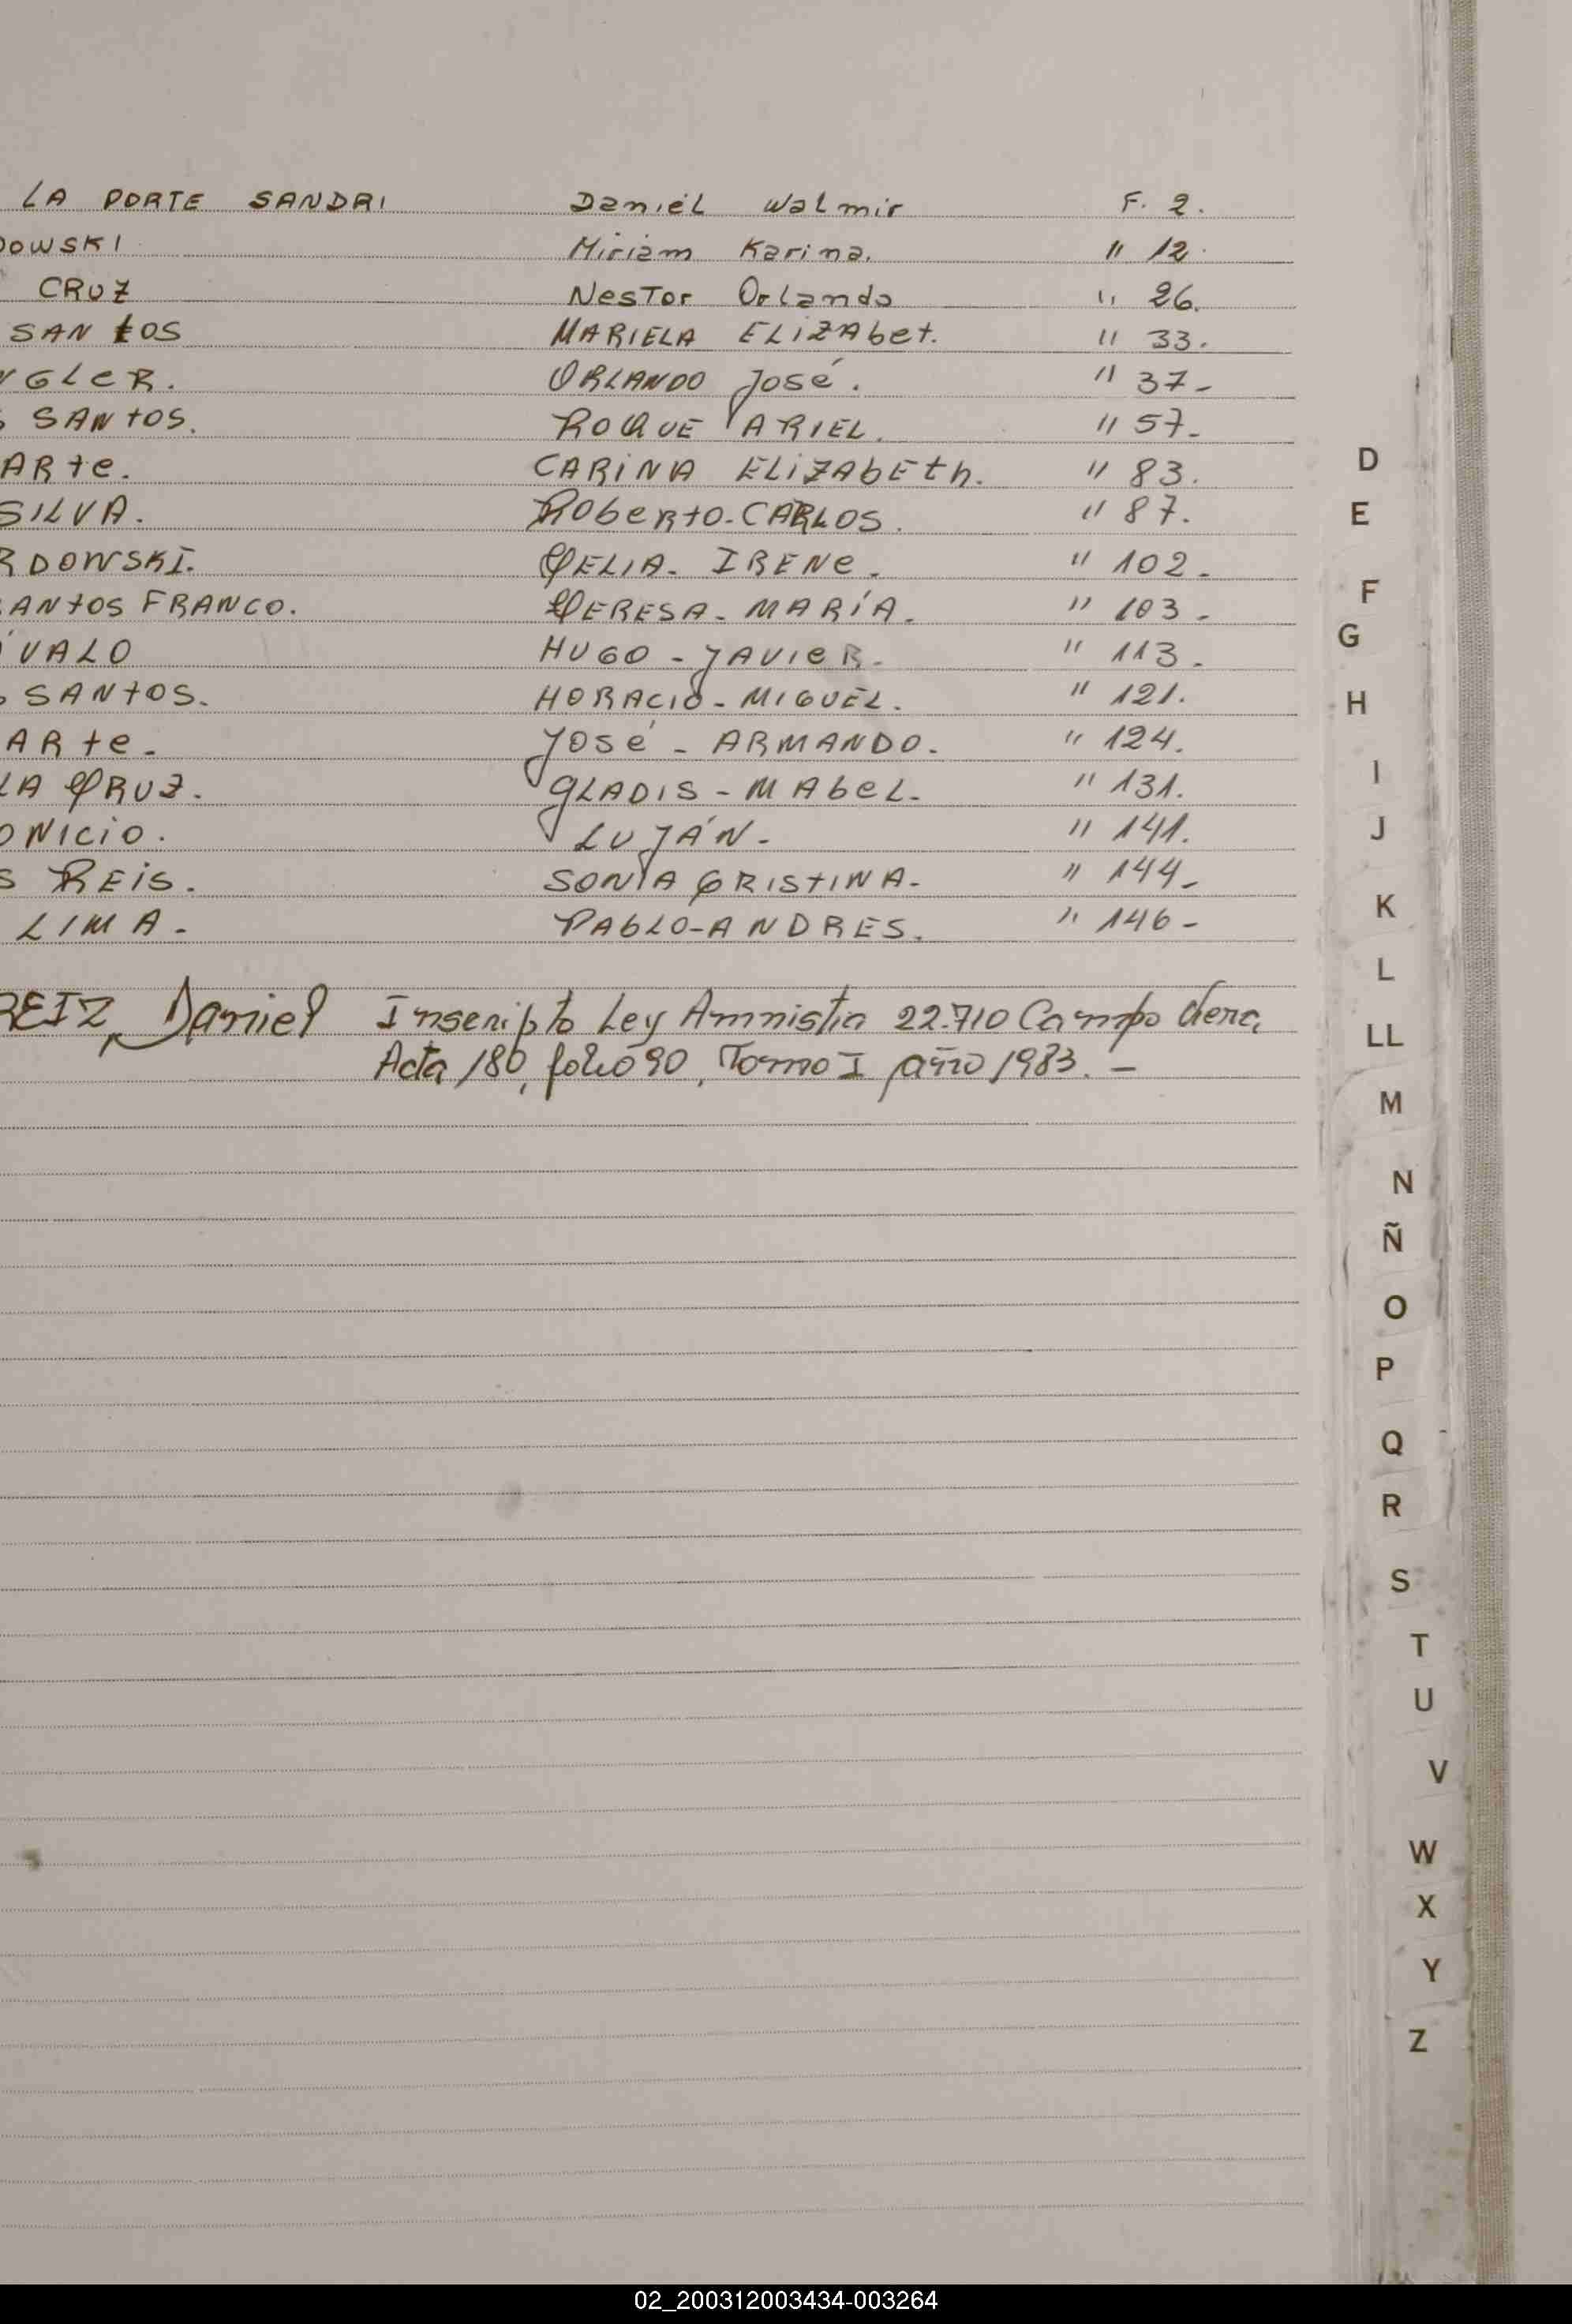 LA PORTE SANDRI Daniel Walmir F. 2.
DOWSKI Miriam Karina. " 12.
CRUZ Nestor Orlando " 26.
SANTOS MARIELA ELIZAbet. " 33.
NGLER. ORLANDO José. " 37-
S SANtOS. ROQUE ARIEL. " 57-
ARte. CARINA ELIZAbEth. " 83.
SILVA. Roberto-CARLOS. " 87.
RDOWSKI. CELIA- IRENe. " 102-
SANtOS FRANCO. TERESA- MARÍA. " 103-
ÍVALO HUGO-JAVIER- " 113.
S SANtOS. HORACIO-MIGUEL. " 121.
ARte- José-ARMANDO. " 124.
LA CRUZ. GLADIS-MAbeL- " 131.
ONICIO. LUJÁN- " 141.
S REIS. SONIA CRISTINA- " 144-
LIMA- PABLO-ANDRES. " 146-
REIZ, Daniel Inscripto Ley Amnistia 22.710 Campo
Acta 180, folio 90, Tomo I año 1983. -
D
E
F
G
H
I
J
K
L
LL
M
N
Ñ
O
P
Q
R
S
T
U
V
W
X
Y
Z
02_200312003434-003264